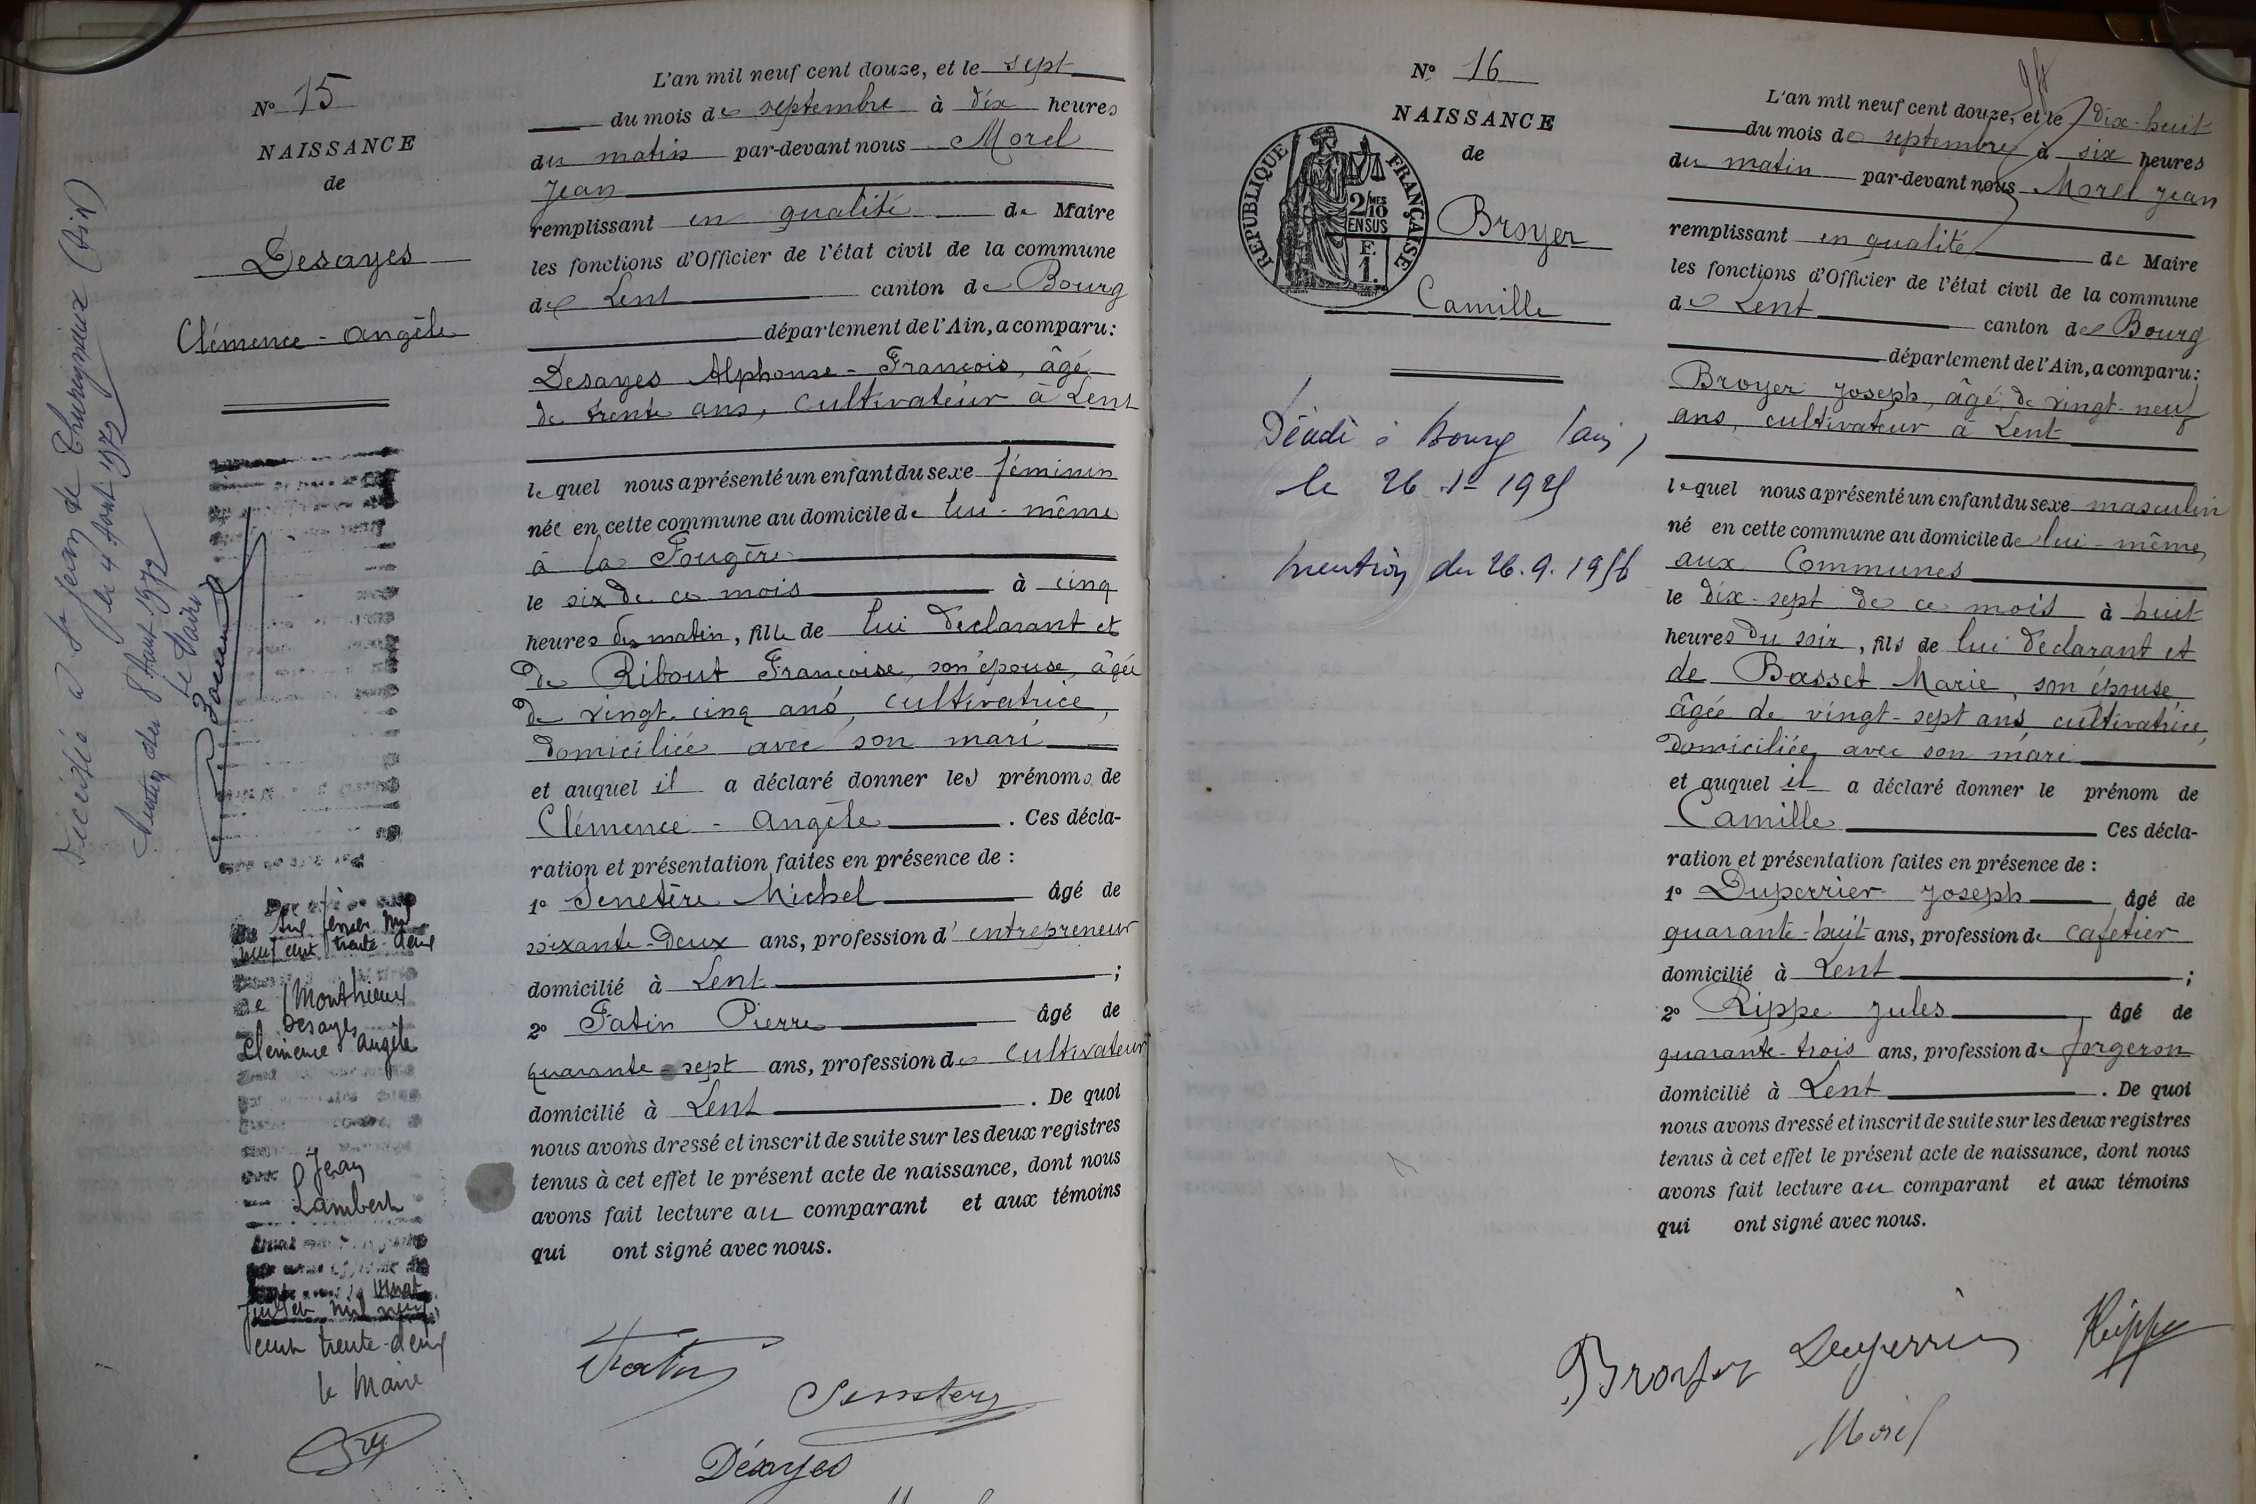 N° 15
NAISSANCE
de
Desayes
Clémence - Angèle
Décédée à St Jean de Thurigneux (Ain)
le 4 Août 1972
Mention du 8 Août 1972
Le Maire
six février mil
neuf cent trente-deux
Monthieux
Desayes
Clémence Angèle
Jean
Lambert
vingt
juillet mil neuf
cent trente-deux
le Maire
L'an mil neuf cent douze, et le sept
du mois de septembre à dix heures
du matin par-devant nous Morel
Jean
remplissant en qualité de Maire
les fonctions d'Officier de l'état civil de la commune
de Lent canton de Bourg
département de l'Ain, a comparu:
Desayes Alphonse - François, âgé
de trente ans, cultivateur à Lent
lequel nous a présenté un enfant du sexe féminin
née en cette commune au domicile de lui-même
à la Fougère
le six de ce mois à cinq
heures du matin, fille de lui déclarant et
de Ribout Françoise, son épouse, âgée
de vingt-cinq ans, cultivatrice,
domiciliée avec son mari
et auquel il a déclaré donner les prénoms de
Clémence - Angèle. Ces décla-
ration et présentation faites en présence de :
1° Senetère Michel âgé de
soixante-deux ans, profession d'entrepreneur
domicilié à Lent ;
2° Fatin Pierre âgé de
quarante-sept ans, profession de cultivateur
domicilié à Lent. De quoi
nous avons dressé et inscrit de suite sur les deux registres
tenus à cet effet le présent acte de naissance, dont nous
avons fait lecture au comparant et aux témoins
qui ont signé avec nous.
Fatin
Desayes
N° 16
NAISSANCE
de
RÉPUBLIQUE FRANÇAISE
2/10 MES
EN SUS
F.
1.
Broyer
Camille
Décédé à Bourg (Ain)
le 26
mention du 26.9.1956
L'an mil neuf cent douze, et le dix-huit
du mois de septembre à six heures
du matin par-devant nous Morel Jean
remplissant en qualité de Maire
les fonctions d'Officier de l'état civil de la commune
de Lent canton de Bourg
département de l'Ain, a comparu:
Broyer Joseph, âgé de vingt-neuf
ans, cultivateur à Lent
lequel nous a présenté un enfant du sexe masculin
né en cette commune au domicile de lui-même,
aux Communes
le dix-sept de ce mois à huit
heures du soir, fils de lui déclarant et
de Basset Marie, son épouse,
âgée de vingt-sept ans, cultivatrice,
domiciliée avec son mari
et auquel il a déclaré donner le prénom de
Camille Ces décla-
ration et présentation faites en présence de :
1° Duperrier Joseph âgé de
quarante-huit ans, profession de cafetier
domicilié à Lent ;
2° Rippe Jules âgé de
quarante-trois ans, profession de forgeron
domicilié à Lent. De quoi
nous avons dressé et inscrit de suite sur les deux registres
tenus à cet effet le présent acte de naissance, dont nous
avons fait lecture au comparant et aux témoins
qui ont signé avec nous.
Broyer Duperrier Rippe
Morel